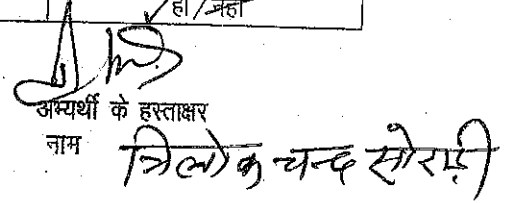 हाँ/नहीं
अभ्यर्थी के हस्ताक्षर
नाम त्रिलोक चन्द सोराड़ी